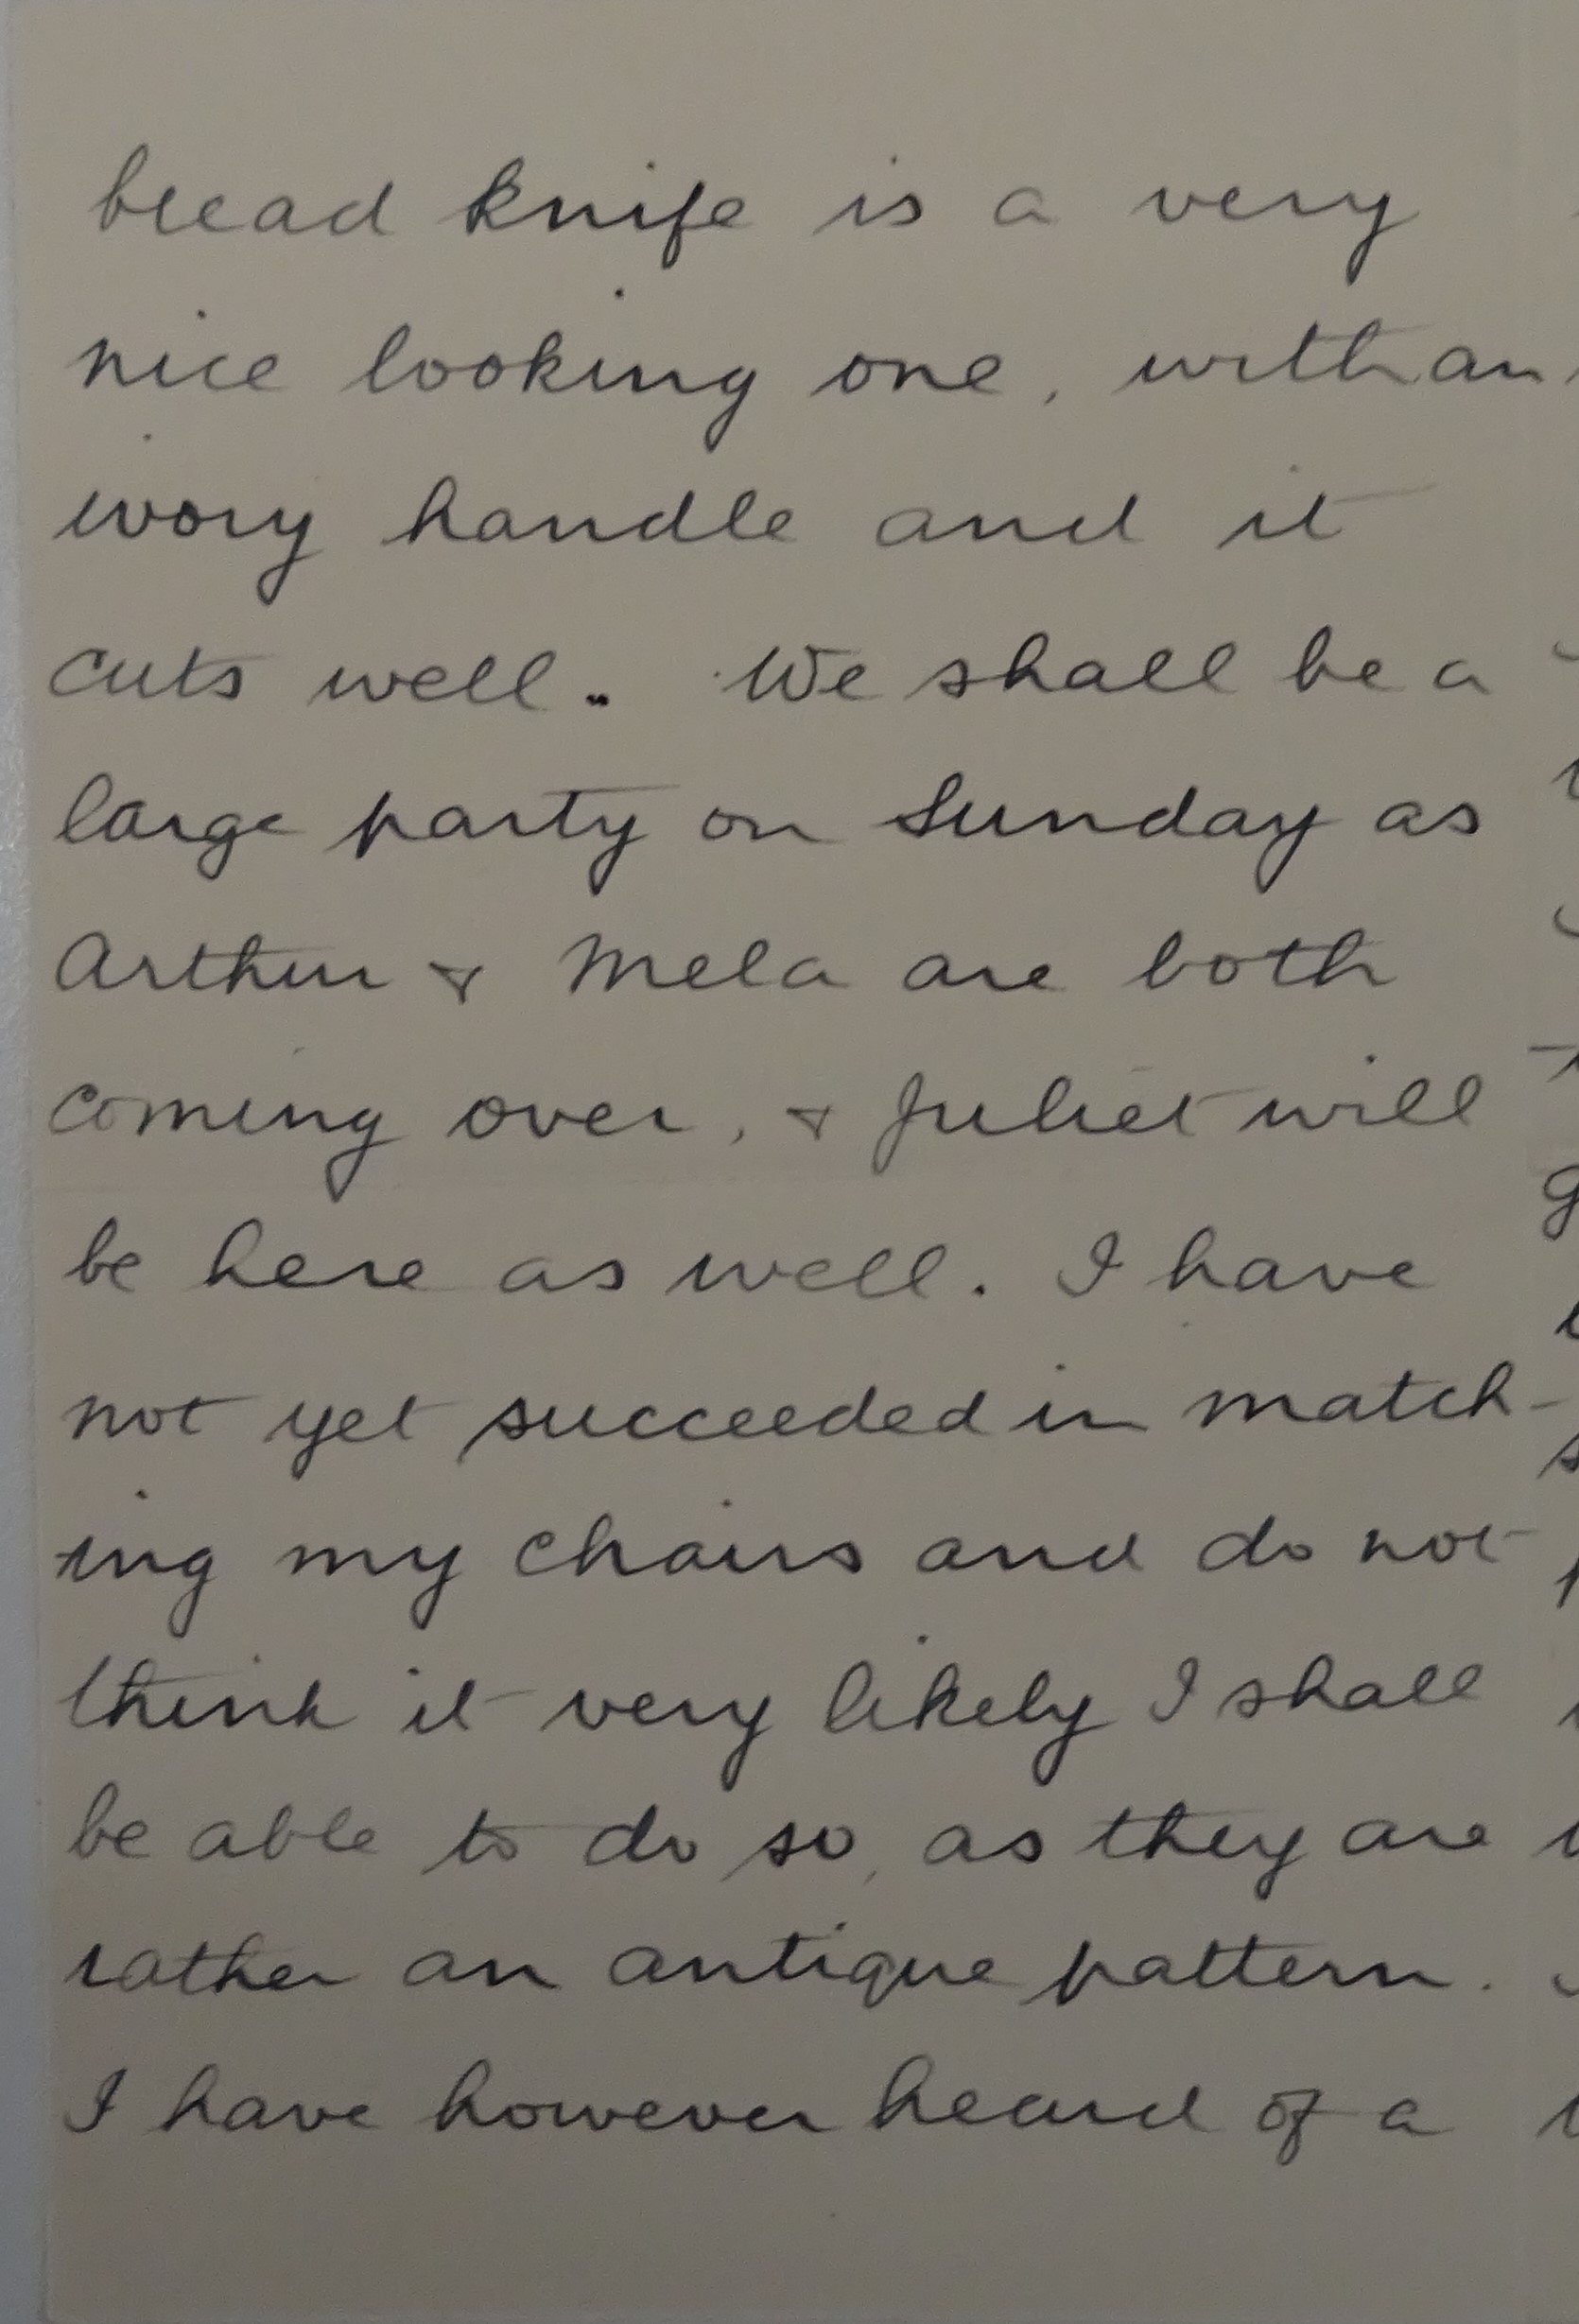 bread knife is a very
nice looking one, with an
ivory handle and it
cuts well.. We shall be a
large party on Sunday as
Arthur & Mela are both
coming over, & Juliet will
be here as well. I have
not yet succeeded in match-
ing my chairs and do not
think it very likely I shall
be able to do so, as they are
rather an antique pattern.
I have however heard of a